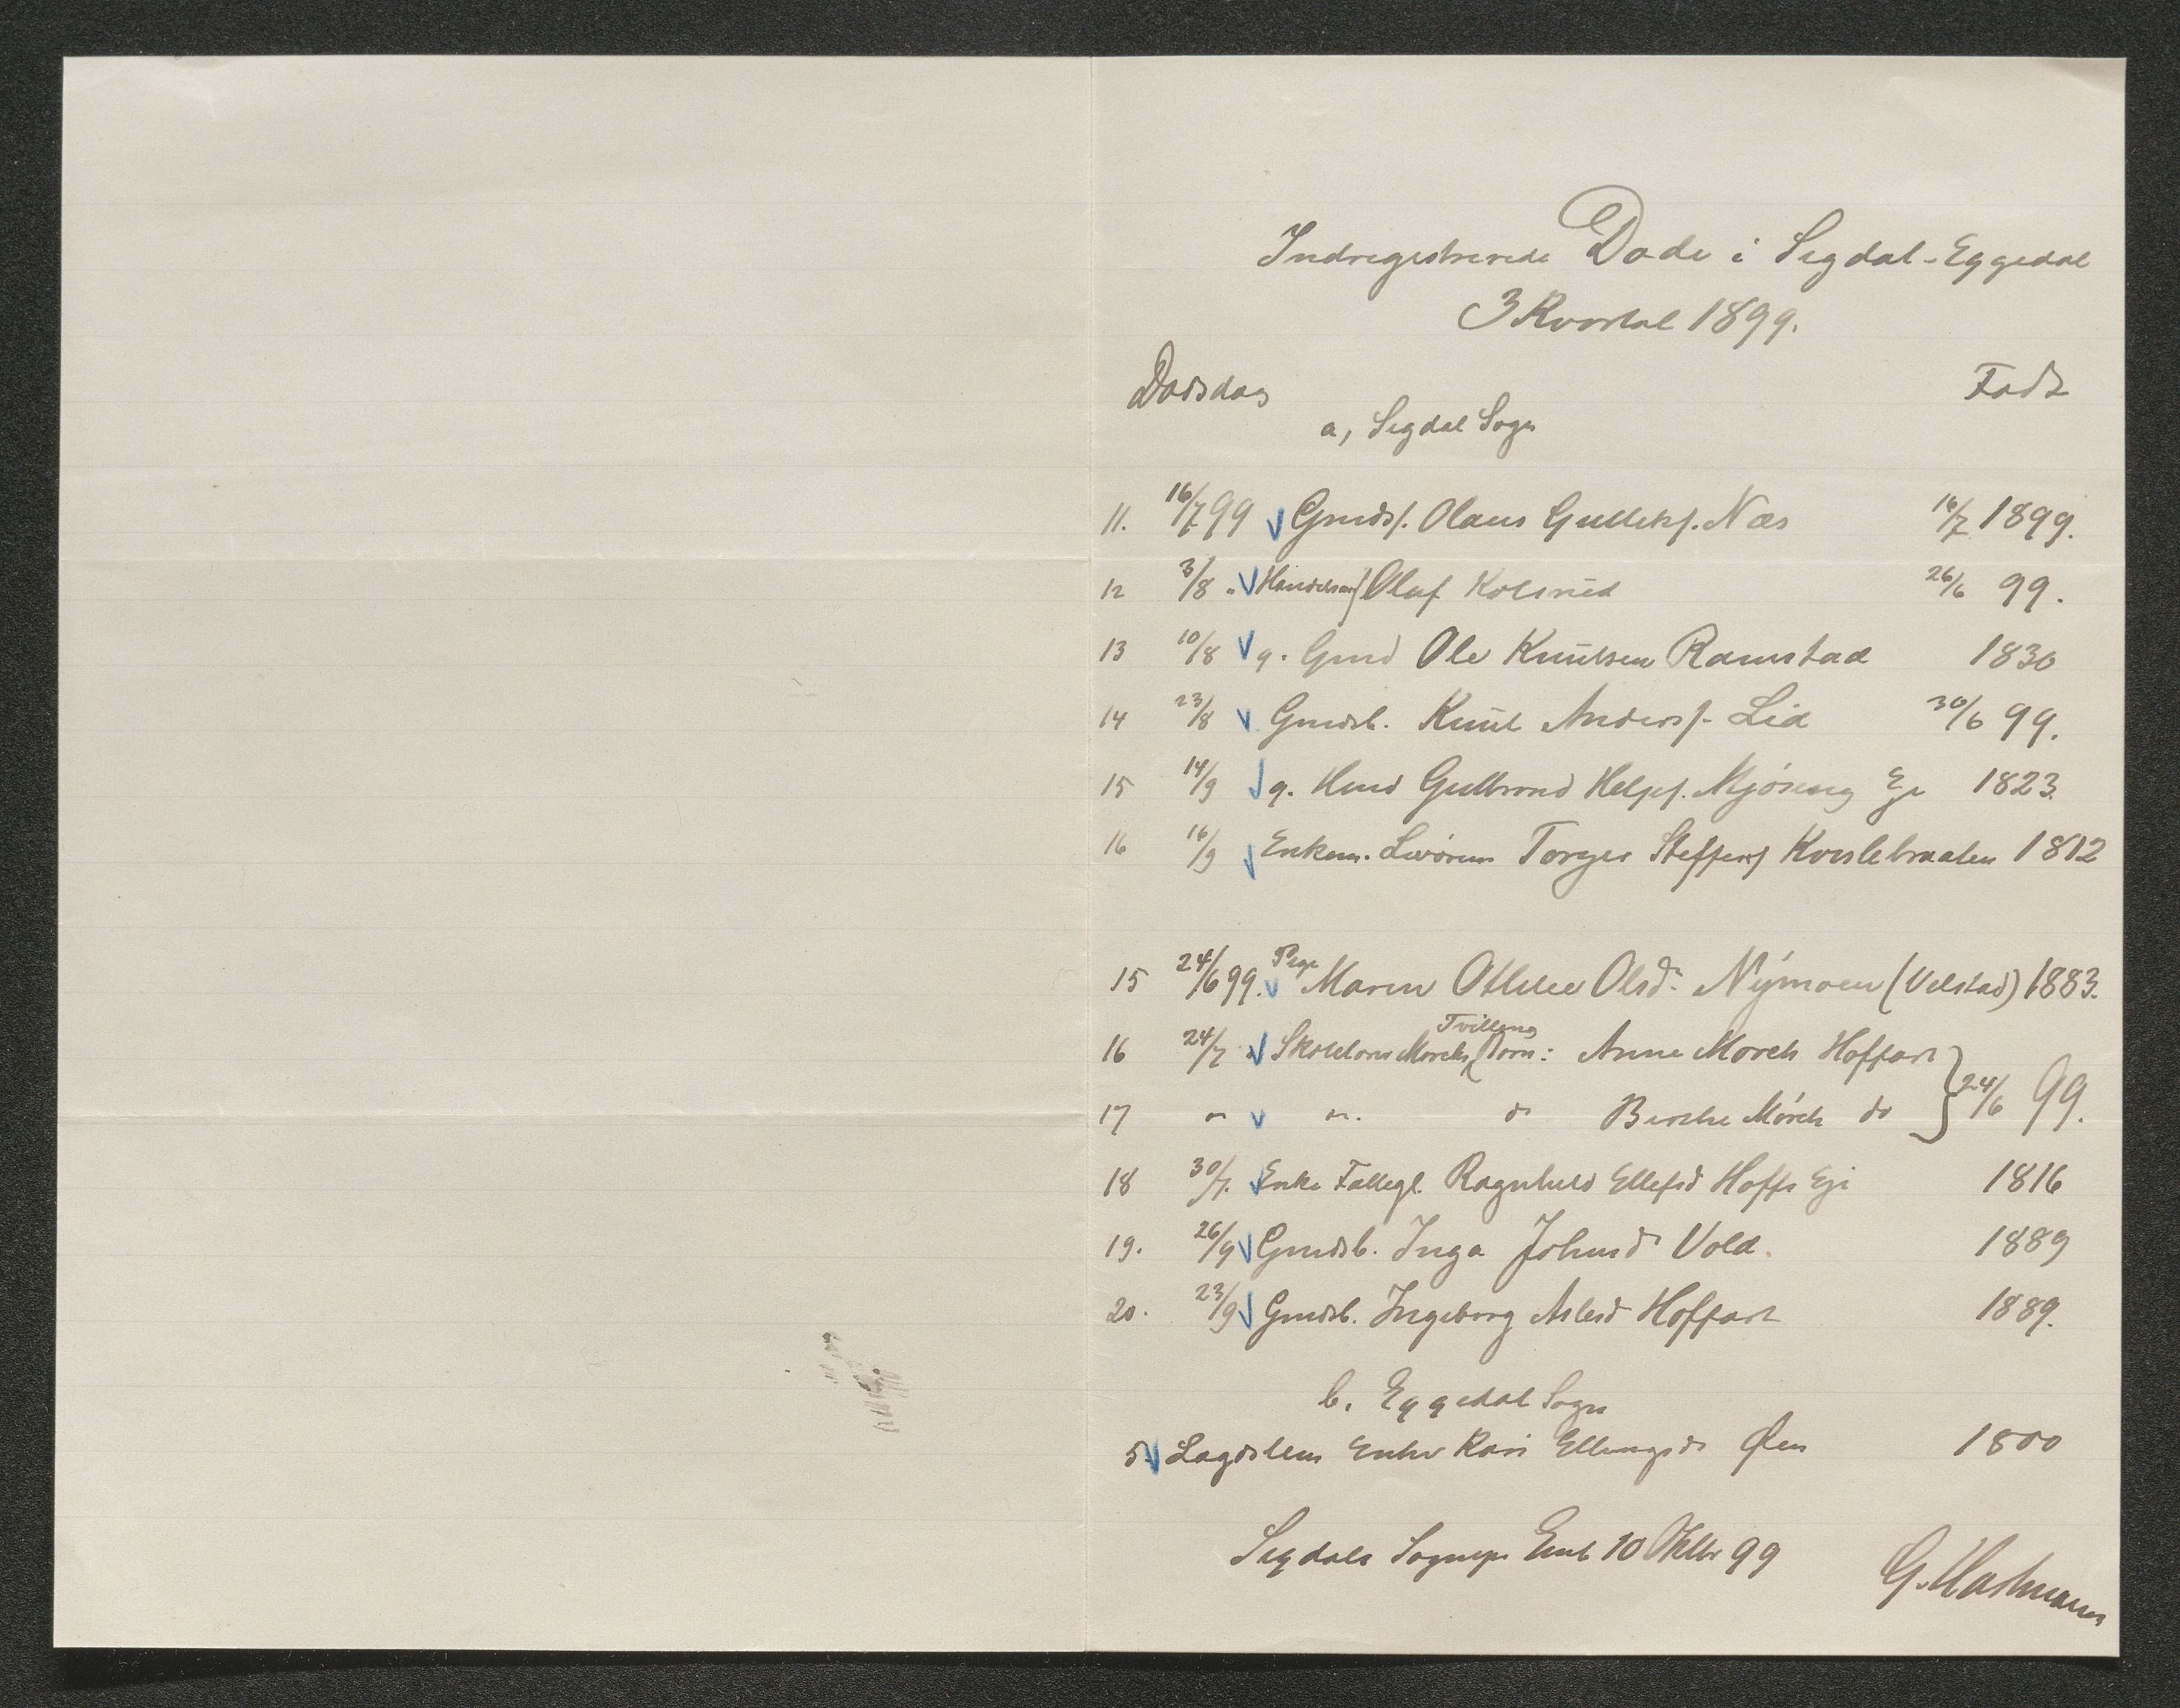 Indregistrerede Døde i Sigdal-Eggedal
3 Kvartal 1899.
Dødsdag Født
a, Sigdal Sogn
11. 16/7 99 Grmds. Olaus Gulliks. Næs 16/7 1899.
12 3/8 " Olaf Kolsrud 26/6 99.
13 10/8 g. Grmd Ole Knutsen Ramstad 1830
14 23/8 Grmdsb. Knut Anders. Lid 30/6 99.
15 14/9 g. Hmd Gulbrand Helges. Eje 1823.
16 16/9 Enkem. Torger Steffens 1812
15 24/6 99. Pige Maren Olsd. Nymoen (Velstad) 1883.
16 24/7 " Mørchs Tvilling Børn: Anne Mørch Hoffart } 24/6 99.
17 " " do Birthe Mørch do
18 30/7. Enke Ragnhild Ellefsd Hoffs Eje 1816
19. 26/9 Grmdsb. Inga Johnsd Vold. 1889
20. 23/9 Grmdsb. Ingeborg Aslesd Hoffart 1889.
b. Eggedal Sogn
5. Lægdslem Enke Kari Ellingsd. Øen 1800
Sigdals Sognepr. Emb 10 Oktbr 99